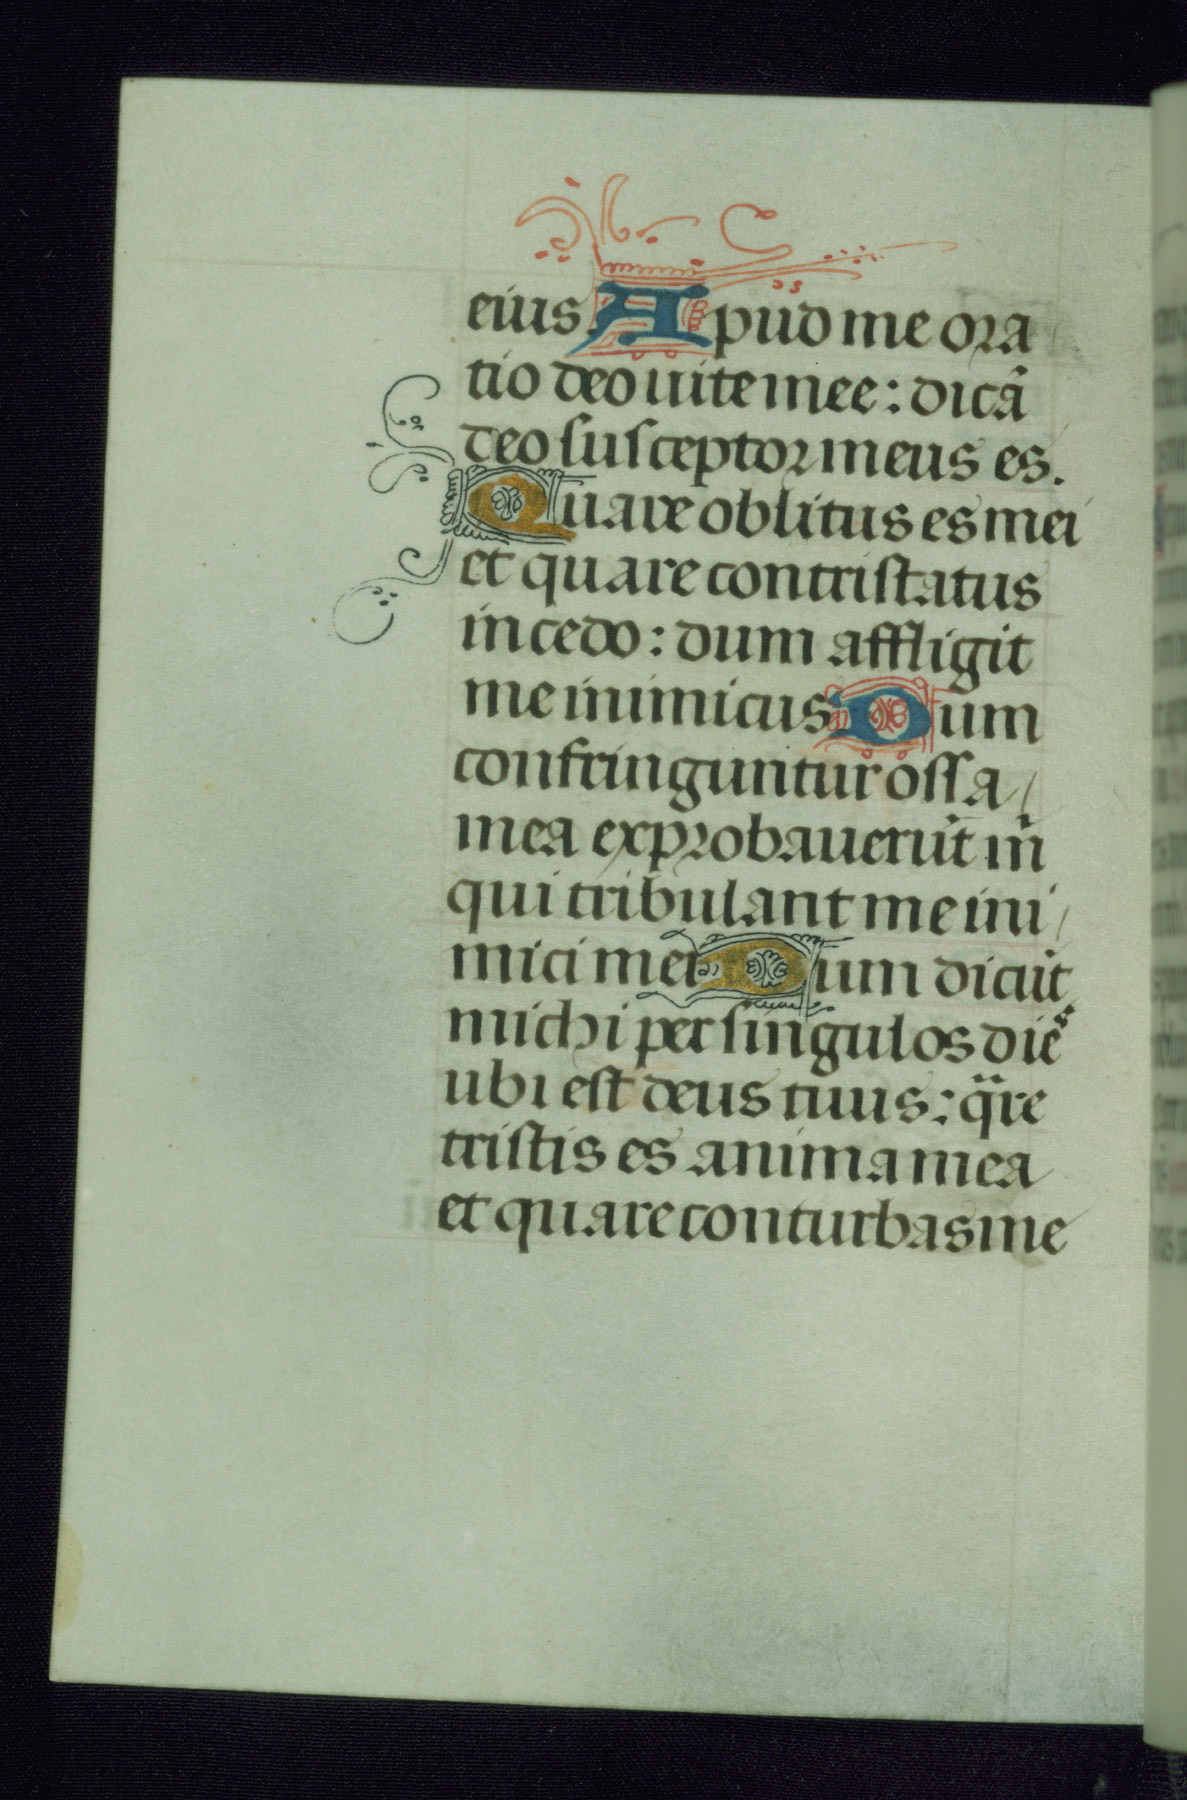 eius Apud me ora
tio deo uite mee : dicã
deo susceptor meus es.
Quare oblitus es mei
et quare contristatus
incedo : dum affligit
me inimicus Dum
confringuntur ossa
mea exprobauerũt m̃
qui tribulant me ini
mici mei Dum dicũt
michi per singulos die͂s
ubi est deus tuus : q̈re
tristis es anima mea
et quare conturbas me